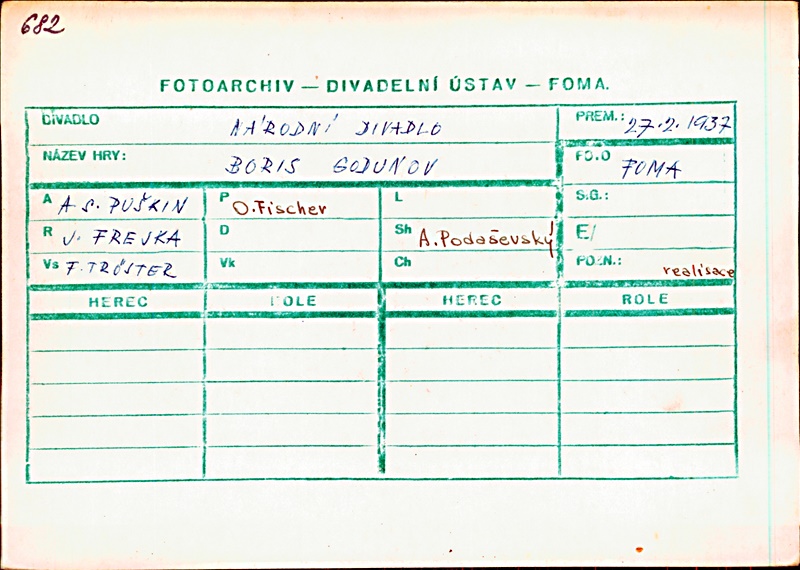 682
FOTOARCHIV — DIVADELNÍ ÚSTAV — FOMA.
DIVADLO NÁRODNÍ DIVADLO PREM.: 27.2.1937
NÁZEV HRY: BORIS GODUNOV FO.O FOMA
A A S. PUŠKIN P O.Fischer L S.G.:
R J. FREJKA D Sh A.Podaševský E/
Vs F. TRÖSTER Vk Ch POZN.: realisace
HEREC ROLE HEREC ROLE